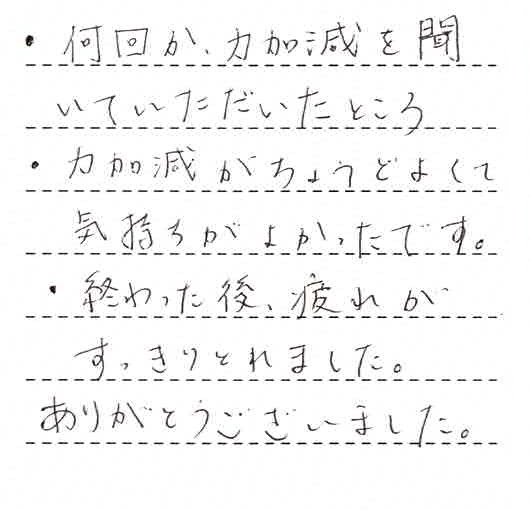 ・何回か、力加減を聞
いていただいたところ
・力加減がちょうどよくて
気持ちがよかったです。
・終わった後、疲れが
すっきりとれました。
ありがとうございました。